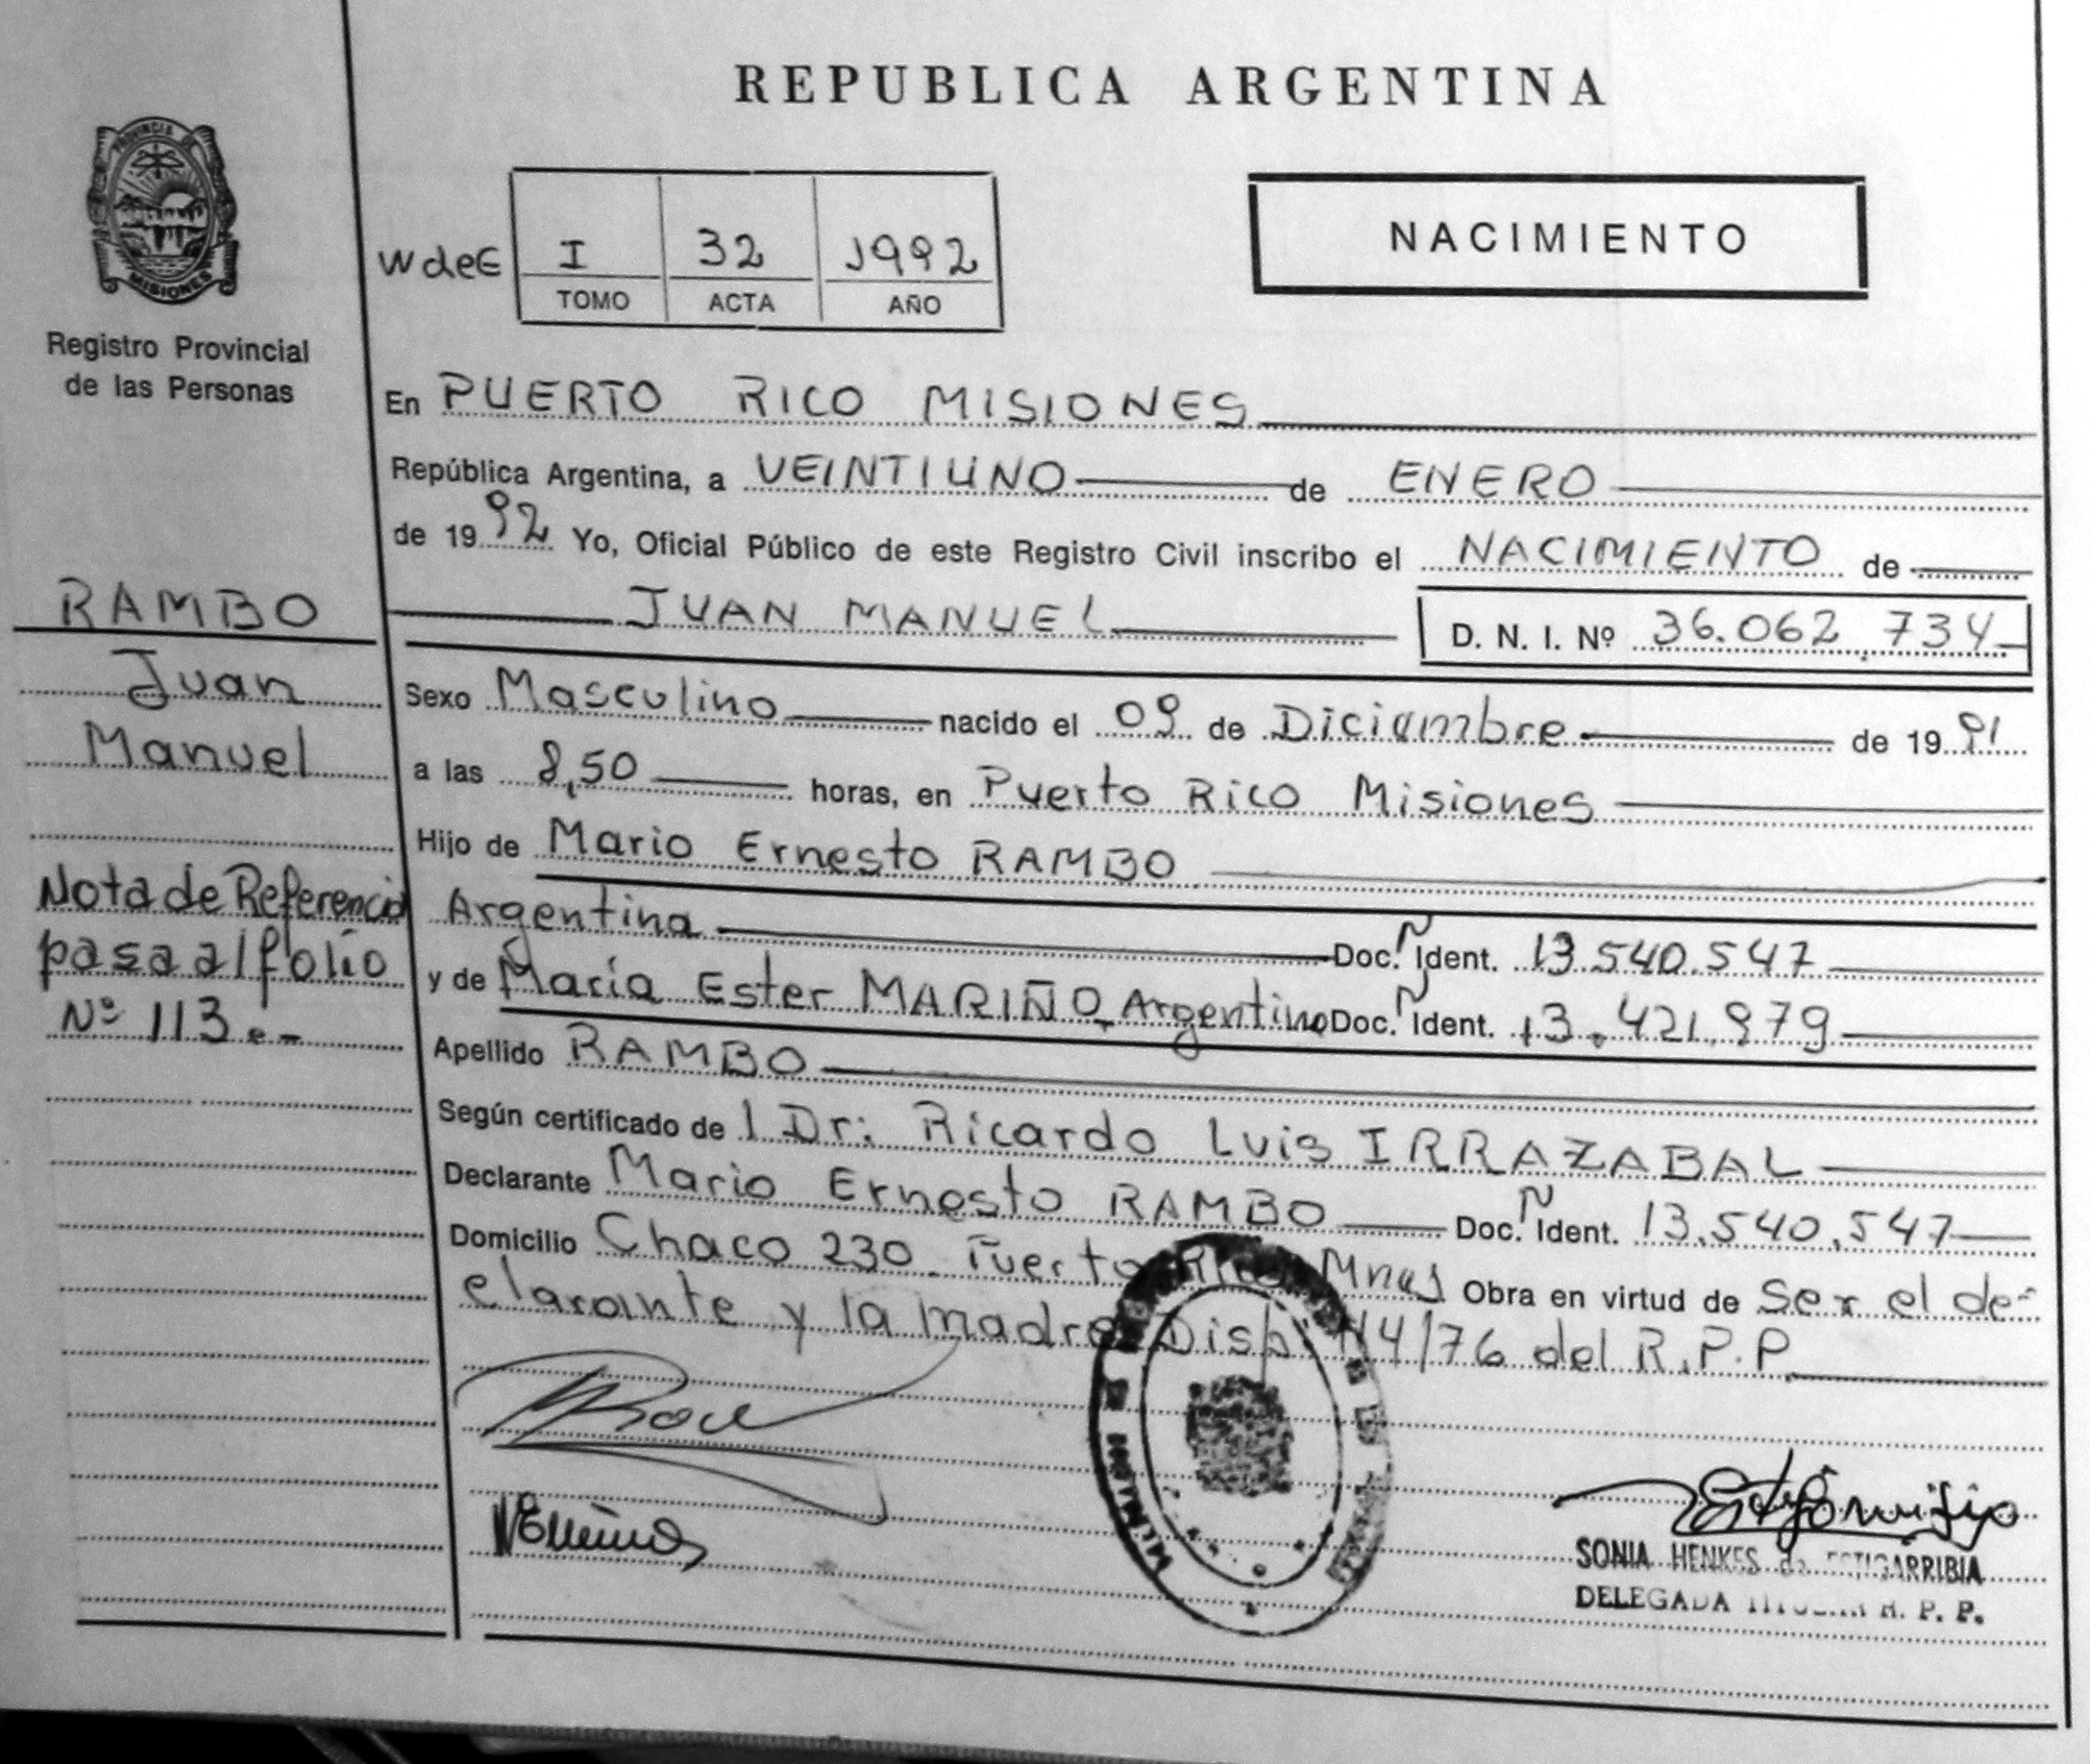 REPUBLICA ARGENTINA
PROVINCIA DE
MISIONES
Registro Provincial
de las Personas
WdeE
I 32 1992
TOMO ACTA AÑO
NACIMIENTO
En PUERTO RICO MISIONES
República Argentina, a VEINTIUNO de ENERO
de 1992 Yo, Oficial Público de este Registro Civil inscribo el NACIMIENTO de
JUAN MANUEL D. N. I. Nº 36.062.734
RAMBO
Juan
Manuel
Nota de Referencia
pasa al folio
Nº 113.-
Sexo Masculino nacido el 09 de Diciembre de 1991
a las 8,50 horas, en Puerto Rico Misiones
Hijo de Mario Ernesto RAMBO
Argentina Doc. N Ident. 13.540.547
y de María Ester MARIÑO Argentina Doc. N Ident. 13.421.979
Apellido RAMBO
Según certificado de l Dr: Ricardo Luis IRRAZABAL
Declarante Mario Ernesto RAMBO Doc. N Ident. 13.540.547
Domicilio Chaco 230 Puerto Rico Mnes Obra en virtud de Ser el de-
clarante y la madre Disp. 114/76 del R.P.P
SONIA HENKES de ESTIGARRIBIA
DELEGADA R. P. P.